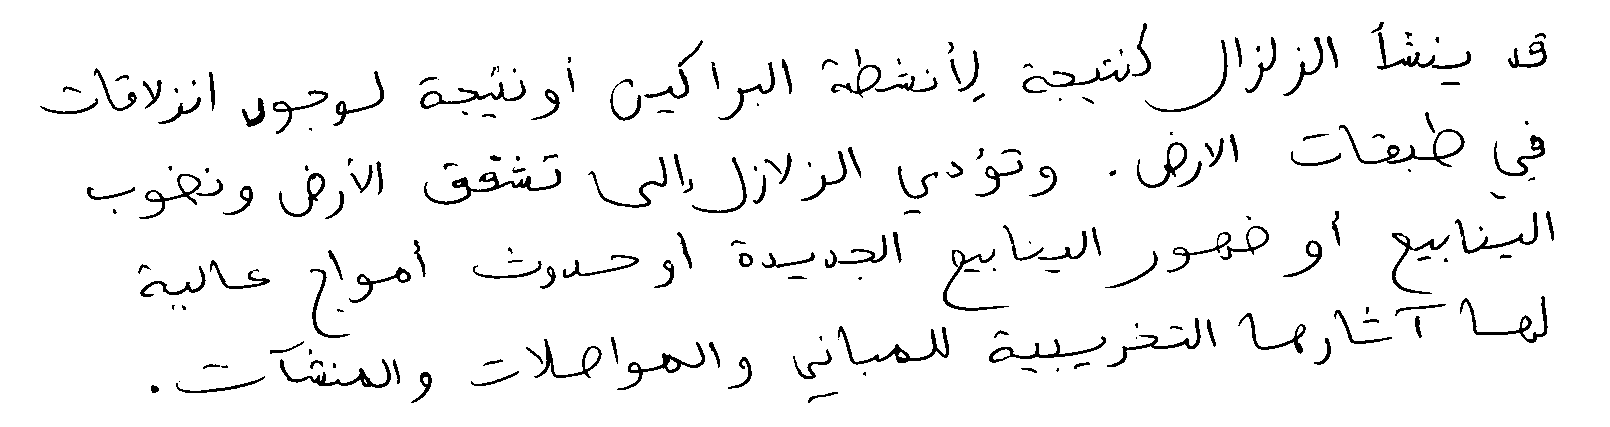 قد ينشأ الزلزال كنتيجة لأنشطة البراكين أو نتيجة لوجود انزلاقات
في طبقات الارض. وتؤدي الزلازل إلى تشقق الأرض ونضوب
الينابيع أو ضهور الينابيع الجديدة أو حدوث أمواج عالية
لها آثارها التخريبية للمباني والمواصلات والمنشآت.